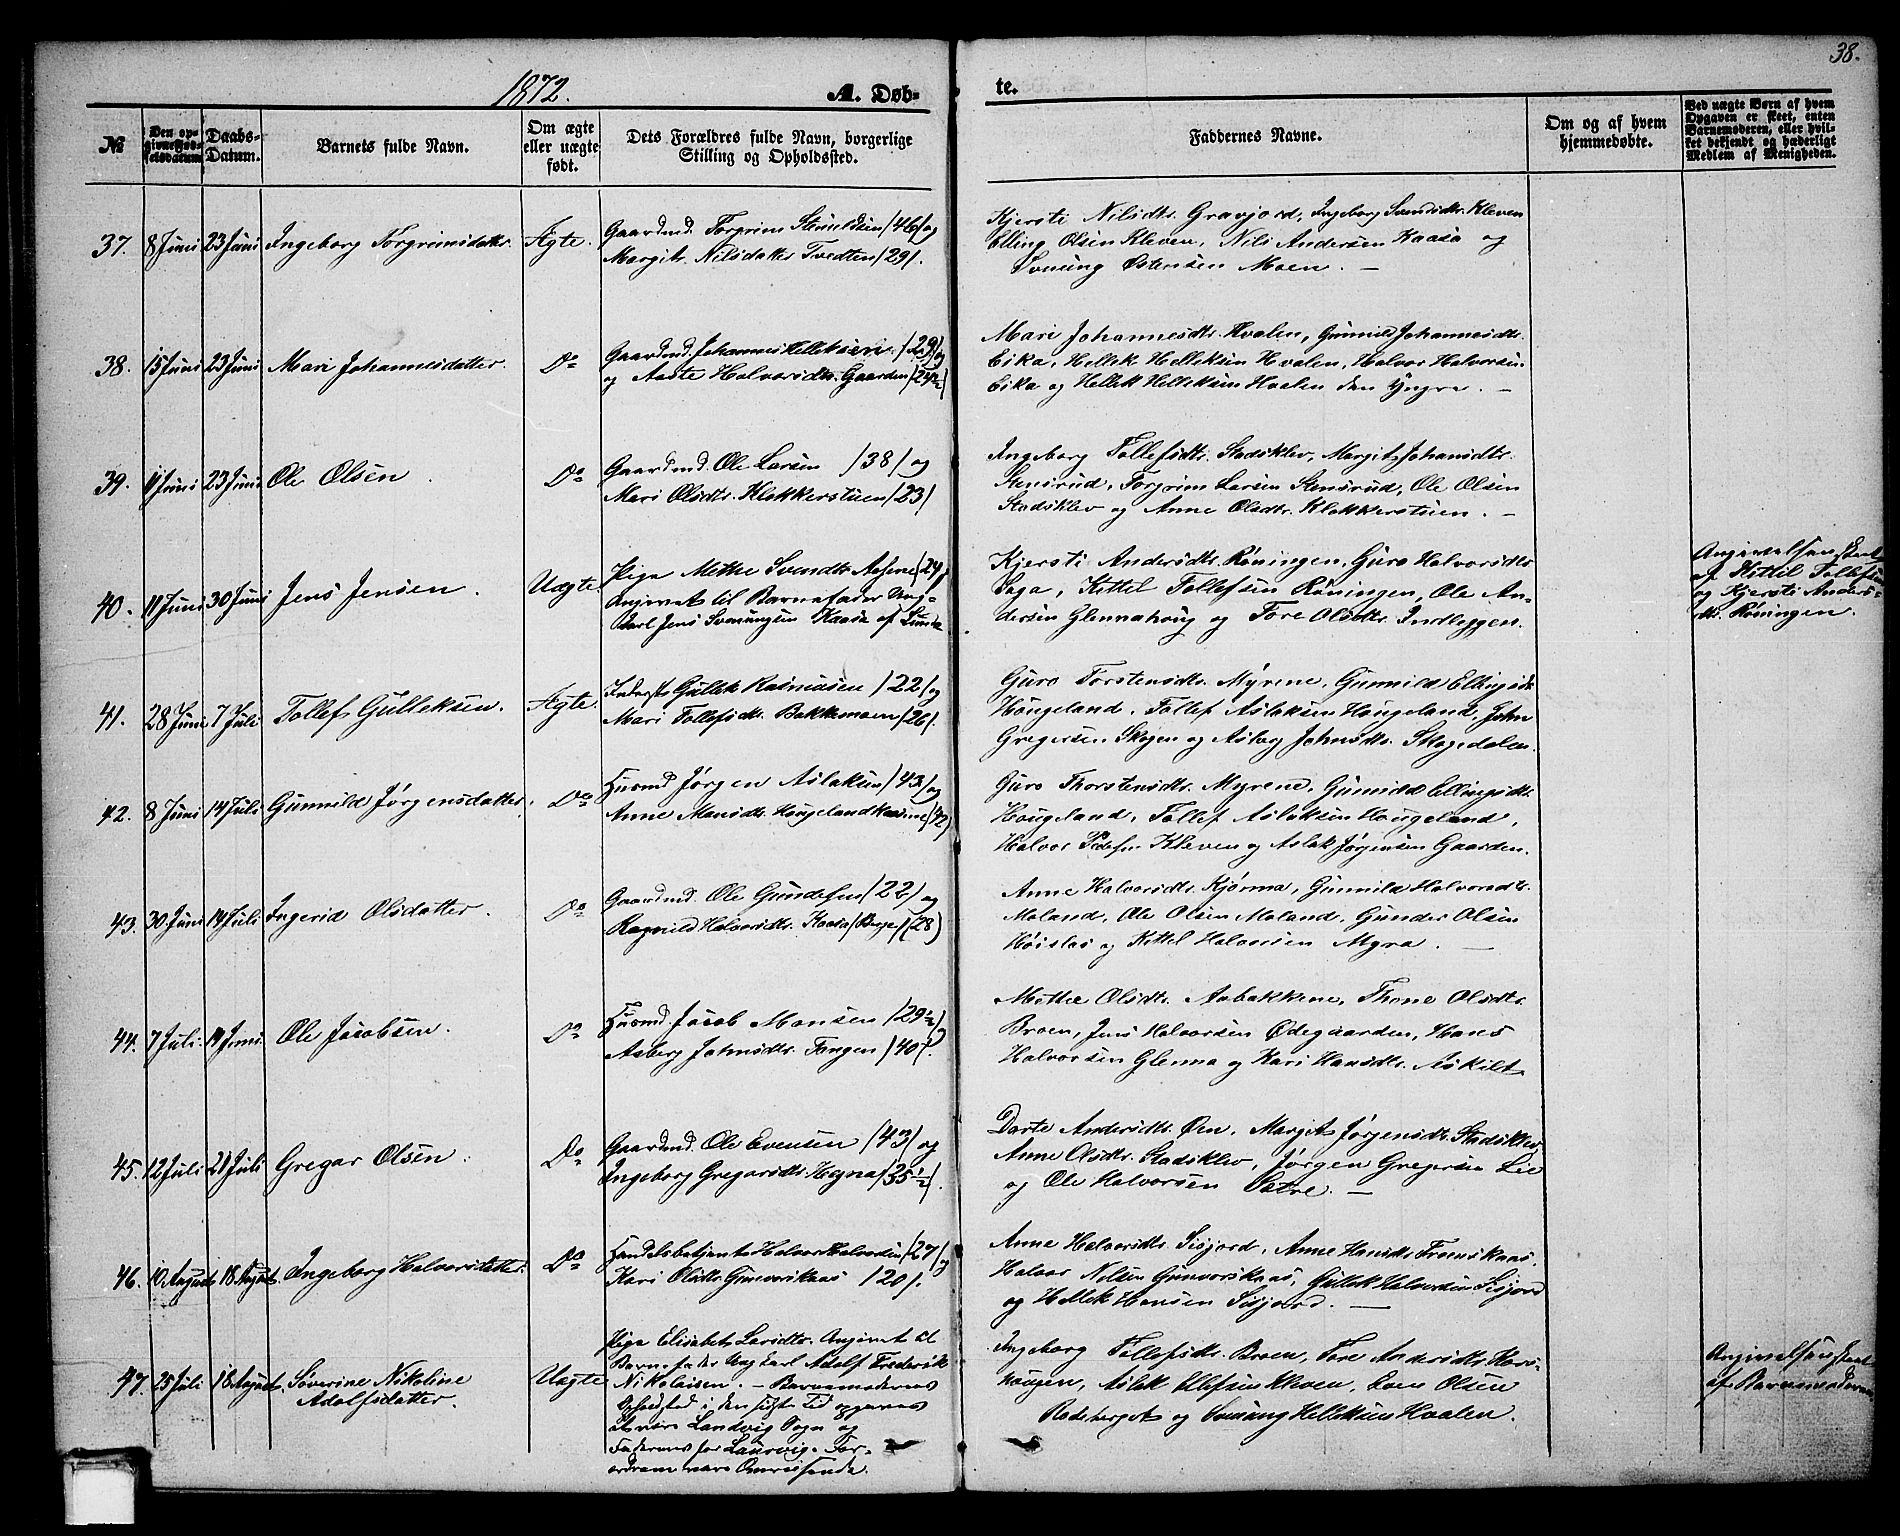 38.
1872.
A. Døb-
te.
№
Den op-
givne Fød-
selsdatum
Daabs-
Datum.
Barnets fulde Navn.
Om ægte
eller uægte
født.
Dets Forældres fulde Navn, borgerlige
Stilling og Opholdssted.
Faddernes Navne.
Om og af hvem
hjemmedøbte.
Ved uægte Børn af hvem
Opgaven er skeet, enten
Barnemoderen, eller hvil-
ket bekjendt og hæderligt
Medlem af Menigheden.
37. 8 Juni 23 Juni Ingeborg Torgrimsdatter Ægte. Gaardmd. Torgrim /46/ og
Margit Nilsdatter Tvedten /29/.
Kjersti Nilsdtr. Gravjord, Ingeborg Svendsdtr. Kleven
Elling Olsen Kleven, Nils Andersen Kaasa og
Svenung Østensen Moen. —
38. 15 Juni 23 Juni Mari Johannesdatter. Do Gaardmd. Johannes Helleksen /29/ og
og Aaste Halvorsdtr. Gaarden /24½/
Mari Johannesdtr. Hvalen, Gunnild Johannesdtr.
Eika, Hellek Helleksen Hvalen, Halvor Halvorsen
Eika og Hellek Helleksen Haalen den Yngre. —
39. 11 Juni 23 Juni Ole Olsen Do Gaardmd. Ole Larsen /38/ og
Mari Olsdtr. Klokkerstuen /23/
Ingeborg Tollefsdtr. Stadsklev, Margit Johansdtr.
Stensrud, Torgrim Larsen Stensrud, Ole Olsen
Stadsklev og Anne Olsdtr. Klokkerstuen. —
40. 11 Juni 30 Juni Jens Jensen. Uægte. Pige Methe Svendsdtr. /24/
Angivet til Barnefader Ung-
karl Jens Svenungsen Kaasa af Lunde
Kjersti Andersdtr. Røningen, Guro Halvorsdtr
Saga, Kittil Tollefsen Røningen, Ole An-
dersen Glennahoug og Tore Olsdtr. Indleggen.
Angivelsen skeet
af Kittil Tollefsen
og Kjersti Anders-
dtr. Røningen.
41. 28 Juni 7 Juli Tollef Gulleksen. Ægte. Inderst Gullek Rasmusen /22/ og
Mari Tollefsdtr. Bakkemoen /26/.
Guro Torstensdtr. Myrene, Gunnild Ellingsdtr
Hougeland, Tollef Aslaksen Hougeland, John
Gregersen Skogen og Asberg Johnsdtr. Skogedalen.
42. 8 Juni 14 Juli Gunnild Jørgensdatter. Do Husmd. Jørgen Aslaksen /43/ og
Anne Hansdtr. Hougelandkaasine /42/
Guro Thorstensdtr. Myrene, Gunnild Ellingsdtr.
Hougeland, Tollef Aslaksen Hougeland,
Halvor Kleven og Aslak Jørgensen Gaarden.
43. 30 Juni 14 Juli Ingerid Olsdatter. Do Gaardmd. Ole Gundersen /22/ og
Ragnild Halvorsdtr. Kaasa /Berge/ (28)
Anne Halvorsdtr. Kjørma, Gunnild Halvorsdtr.
Moland, Ole Olsen Moland, Gunder Olsen
Høislas og Kittel Halvorsen Myra. —
44. 7 Juli. 14 Juni. Ole Jacobsen. Do Husmd. Jacob Monsen /29½/ og
Asberg Johnsdtr. Tangen /40/.
Methe Olsdtr. Aabakkene, Thone Olsdtr.
Broen, Jens Halvorsen Ødegaarden, Hans
Halvorsen Glenna og Kari Hansdtr. Askilt
45. 12 Juli 21 Juli Gregar Olsen. Do Gaardmd. Ole Evensen /43/ og
Ingeborg Gregarsdtr. Hegna /35½/.
Dorte Andersdtr. Øen, Margit Jørgensdtr. Stadsklev,
Anne Olsdtr. Stadsklev, Jørgen Gregersen Lie
og Ole Halvorsen Sætre. —
46. 10 August 18 August Ingeborg Halvorsdatter. Do Handelsbetjent Halvor Halvorsen /27/ og
Kari Olsdtr. Gunvorskaas /20/.
Anne Halvorsdtr. Sisjord, Anne Hansdtr.
Halvor Nilsen Gunvorskaas, Gullek Halvorsen Sisjord
og Hellek Hansen Sisjord. —
47. 25 Juli 18 August. Søverine Nikoline
Adolfsdatter. Uægte Pige Elisabet Larsdtr. Angivet til
Barnefader Ungkarl Adolf Frederik
Nikolaisen. — Barnemoderens
Opholdsted i den sidste Tid opgives
at være Landvig Sogn og
Faderens for Laurvig.
Ingeborg Tollefsdtr. Broen, Tore Andersdtr.
haugen, Aslak Kleven, Even Olsen
Radeberget og Svenung Helleksen Haalen.
Angivelsen skeet
af Barnemoderen